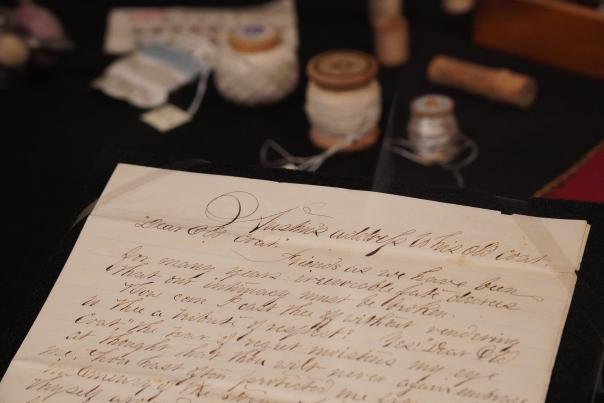 Austin's address to his old coat.
"Dear Old Coat." Friends as we have been
for many years irrevocable fate decrees
that our intimacy must be broken.
How can I cast thee off without rendering
to thee a tribute of respect? Yes! "Dear Old
Coat," the tear of regret moistens my eye
at thought that thou wilt never again embrace
me. Thou hast often protected me from
the of the
thyself